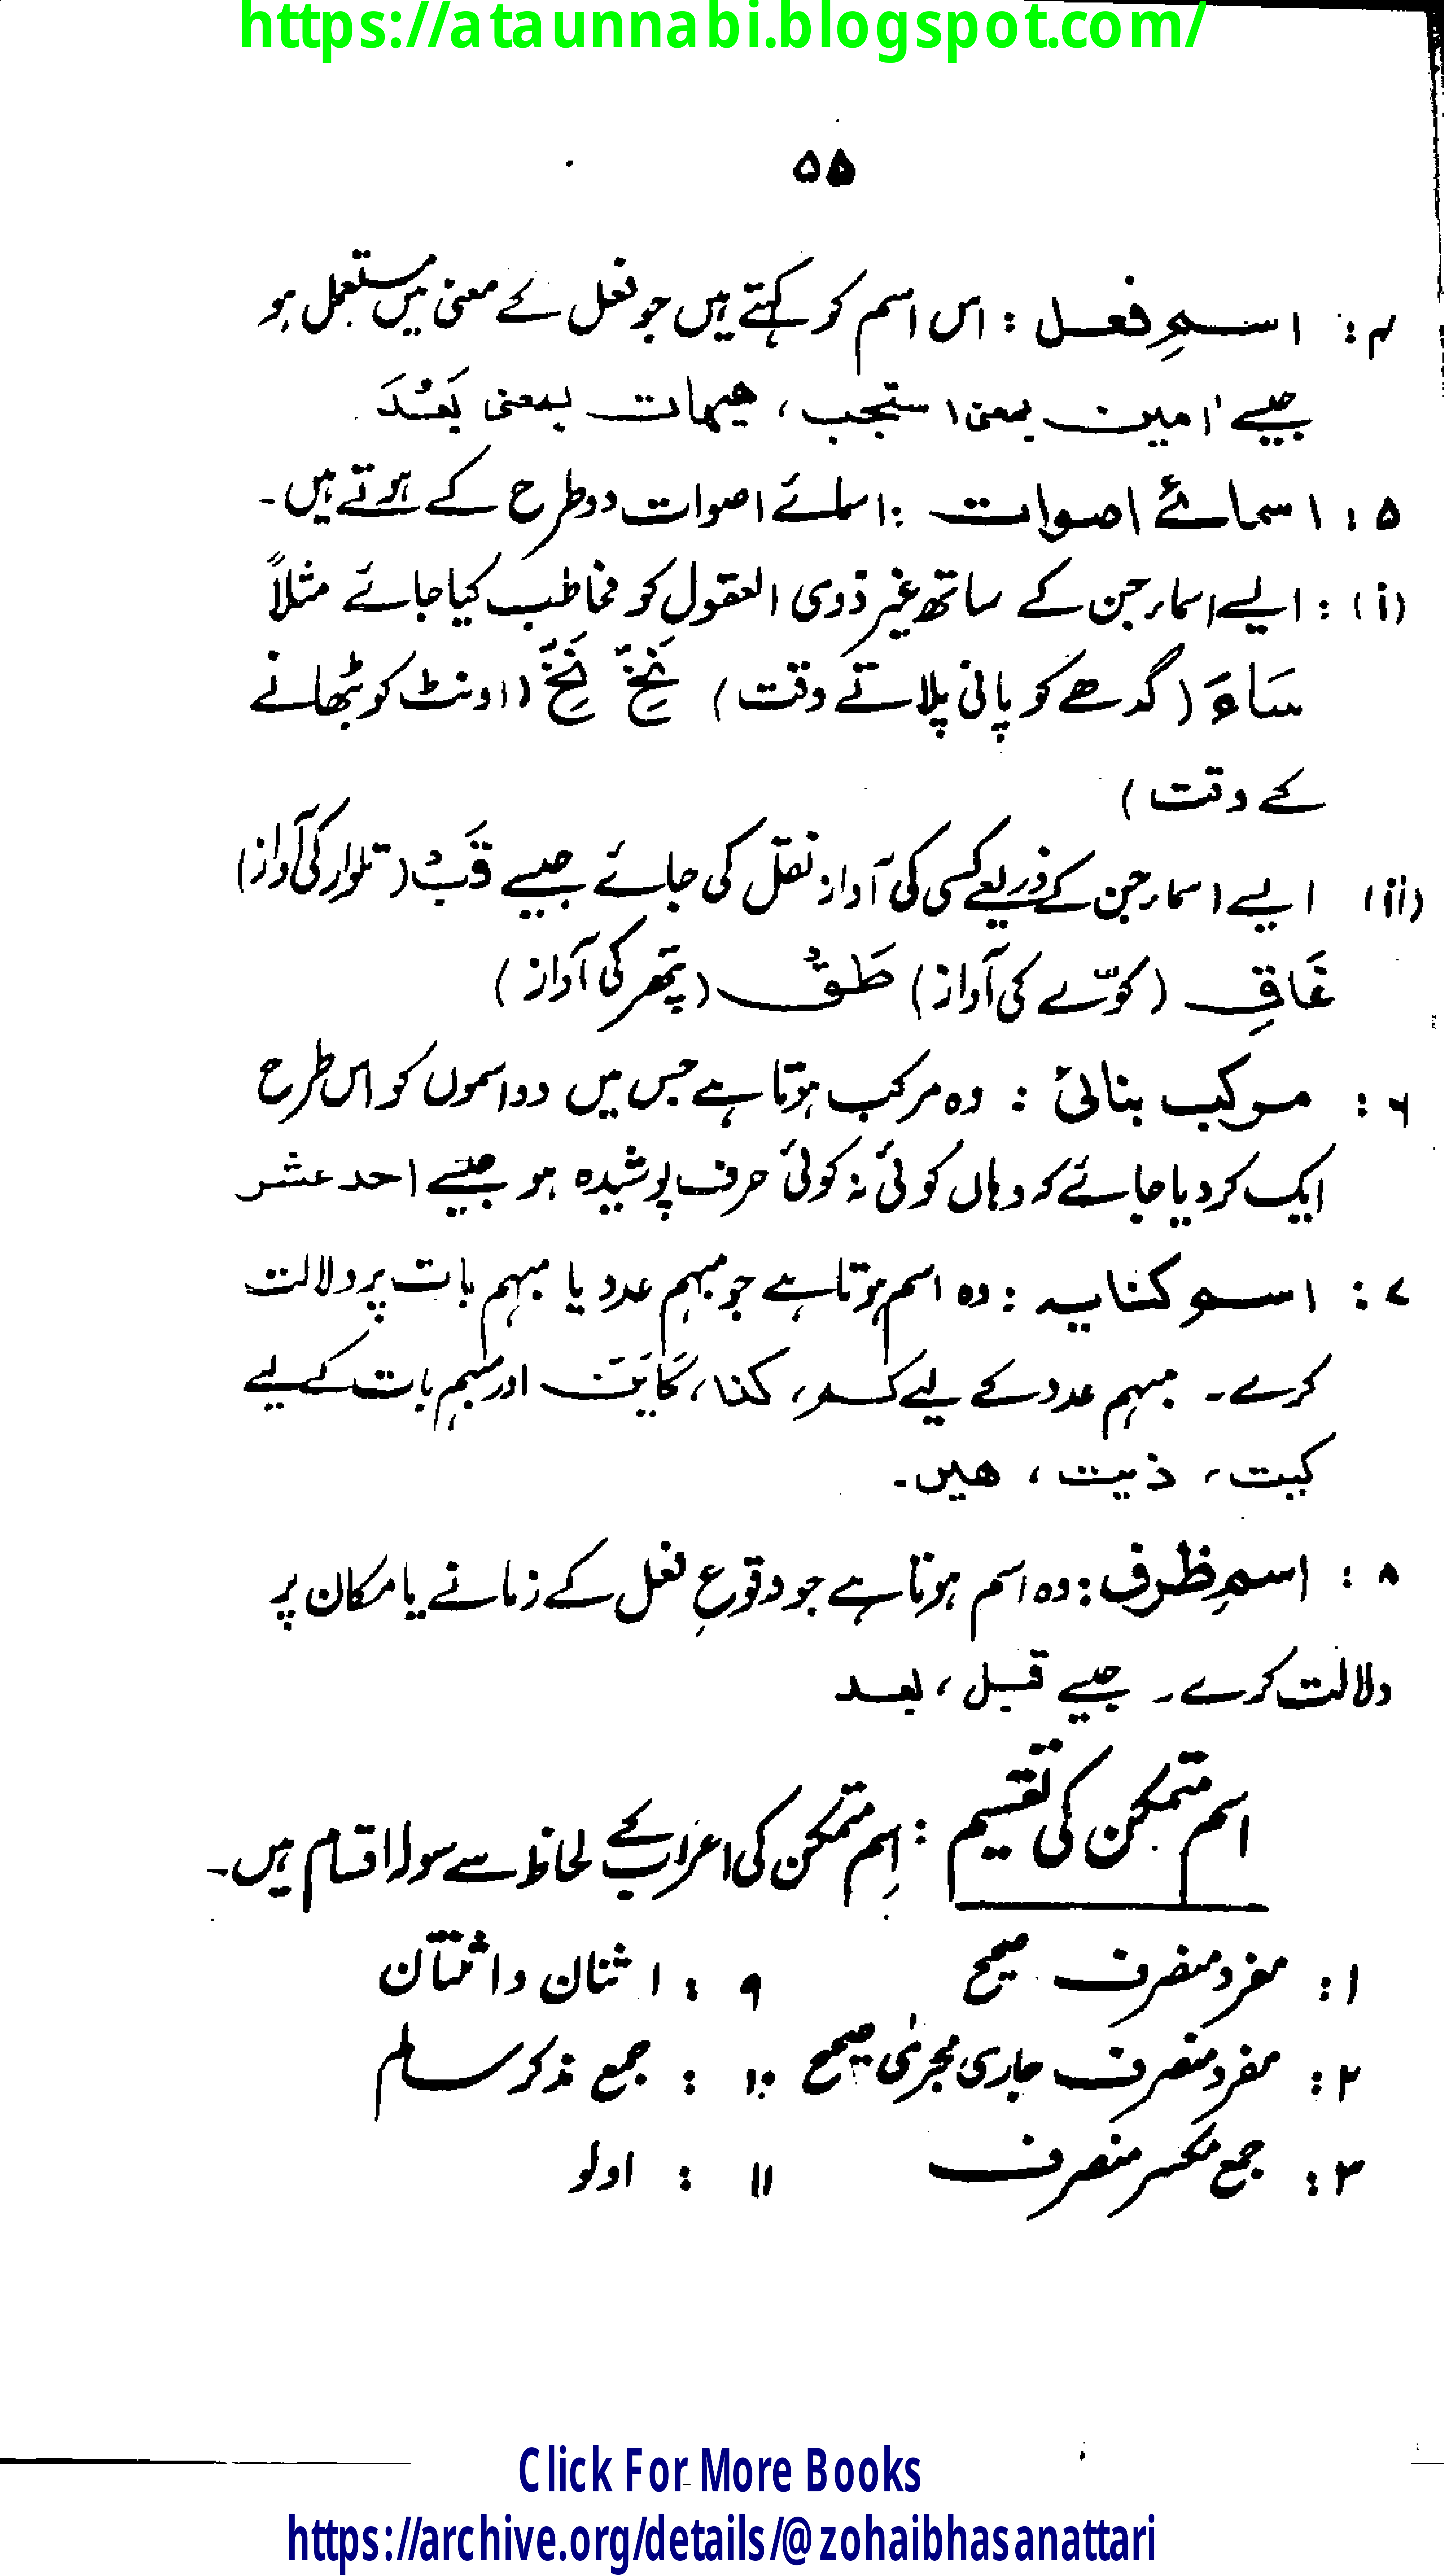 https://ataunnabi.blogspot.com/
۵۵
۴: اسمِ فعل: اس اسم کو کہتے ہیں جو فعل کے معنی میں مستعمل ہو
جیسے اٰمین بمعنی استجب، ھیہات بمعنی بَعُدَ
۵: اسمائے اصوات: اسمائے اصوات دو طرح کے ہوتے ہیں۔
(i): ایسے اسماء جن کے ساتھ غیر ذوی العقول کو مخاطب کیا جائے مثلاً
سَاءَ (گدھے کو پانی پلاتے وقت) نَخِّ نَخِّ (اونٹ کو بٹھانے
کے وقت)
(ii) ایسے اسماء جن کے ذریعے کسی کی آواز نقل کی جائے جیسے قَبْ (تلوار کی آواز)
غَاقِ (کوّے کی آواز) طَقْ (پتھر کی آواز)
۶: مرکب بنائی: وہ مرکب ہوتا ہے جس میں دو اسموں کو اس طرح
ایک کر دیا جائے کہ وہاں کوئی نہ کوئی حرف پوشیدہ ہو جیسے احد عشر
۷: اسم کنایہ: وہ اسم ہوتا ہے جو مبہم عدد یا مبہم بات پر دلالت
کرے۔ مبہم عدد کے لیے کم، کذا، کَاَیَّن اور مبہم بات کے لیے
کیت، ذیت، ھیں۔
۸: اسمِ ظرف: وہ اسم ہوتا ہے جو وقوعِ فعل کے زمانے یا مکان پر
دلالت کرے۔ جیسے قبل، بعد
اسم متمکن کی تقسیم: اسم متمکن کی اعراب کے لحاظ سے سولہ اقسام ہیں۔
۱: مفرد منصرف صحیح ۹: اثنان و اثنتان
۲: مفرد منصرف جاری مجریٰ صحیح ۱۰: جمع مذکر سالم
۳: جمع مکسر منصرف ۱۱: اولو
Click For More Books
https://archive.org/details/@zohaibhasanattari